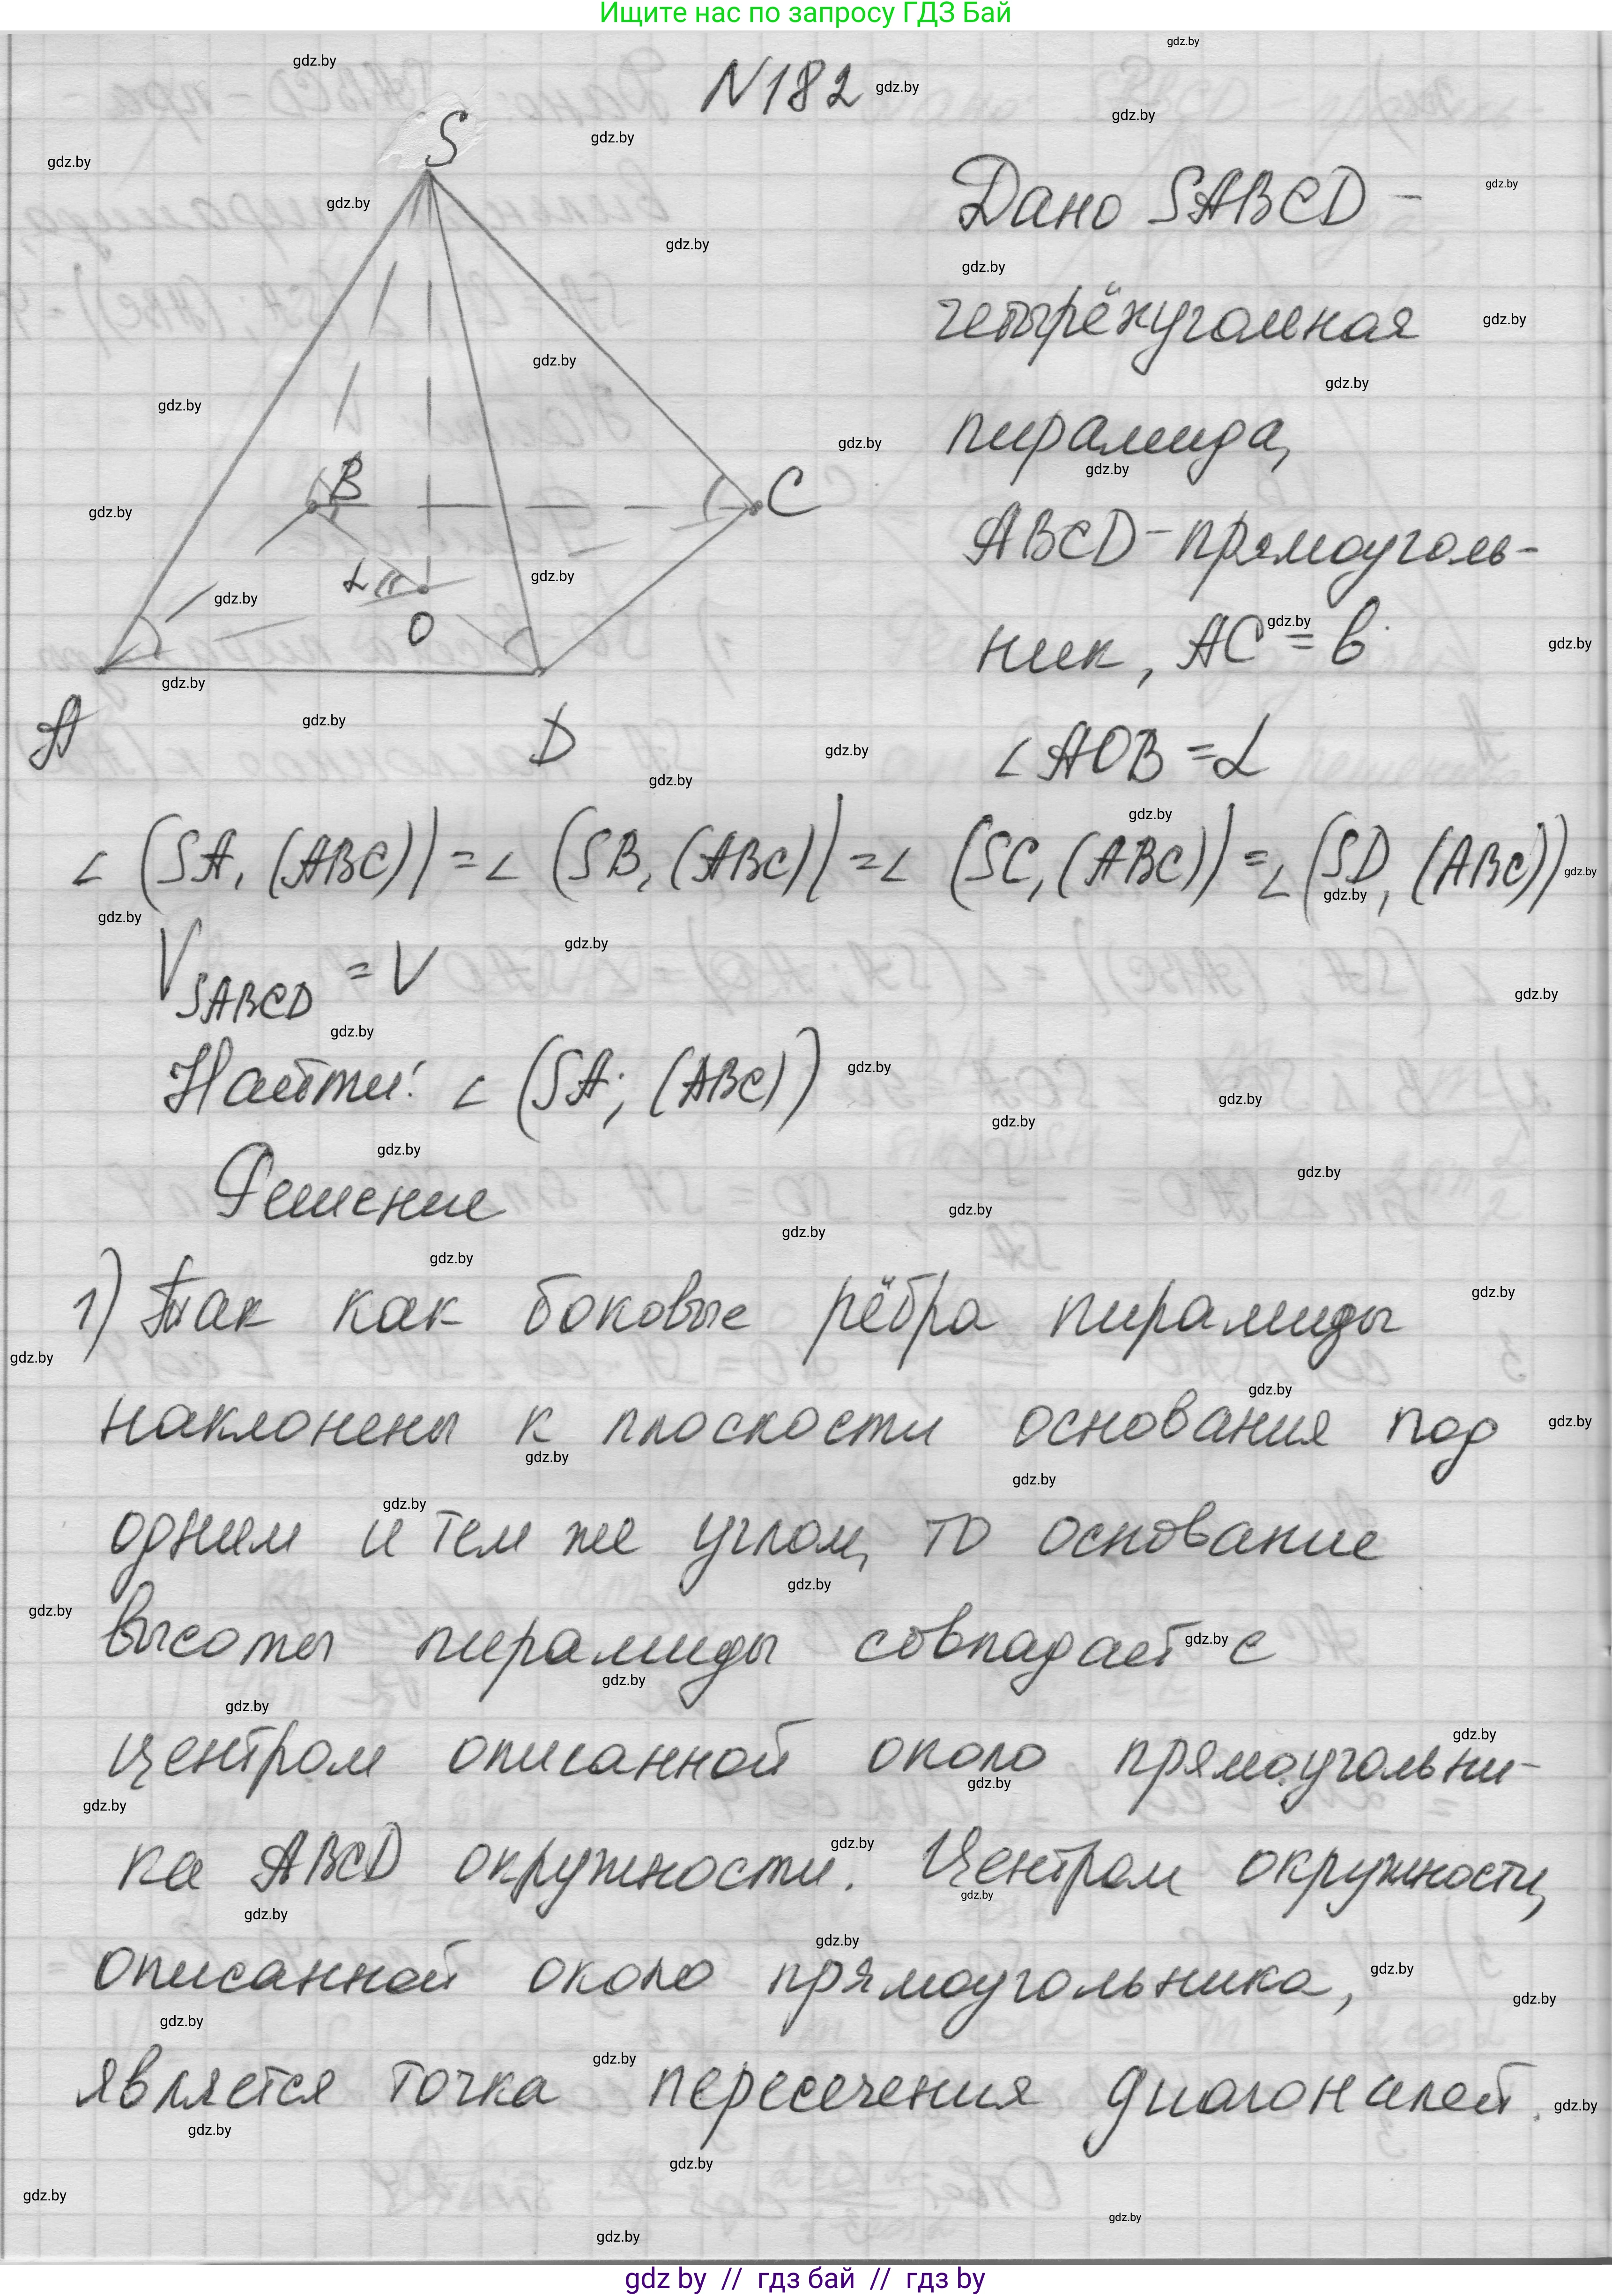 Ищите нас по запросу ГДЗ Бай
N182
S
B
C
α
O
A
D
Дано SABCD -
четырёхугольная
пирамида,
ABCD - прямоуголь-
ник, AC = b
∠AOB = α
∠(SA, (ABC)) = ∠(SB, (ABC)) = ∠(SC, (ABC)) = ∠(SD, (ABC))
V SABCD = V
Найти: ∠(SA; (ABC))
Решение
1) Так как боковые рёбра пирамиды
наклонены к плоскости основания под
одним и тем же углом, то основание
высоты пирамиды совпадает с
центром описанной около прямоугольни-
ка ABCD окружности. Центром окружности,
описанной около прямоугольника,
является точка пересечения диагоналей.
gdz by // гдз бай // гдз by